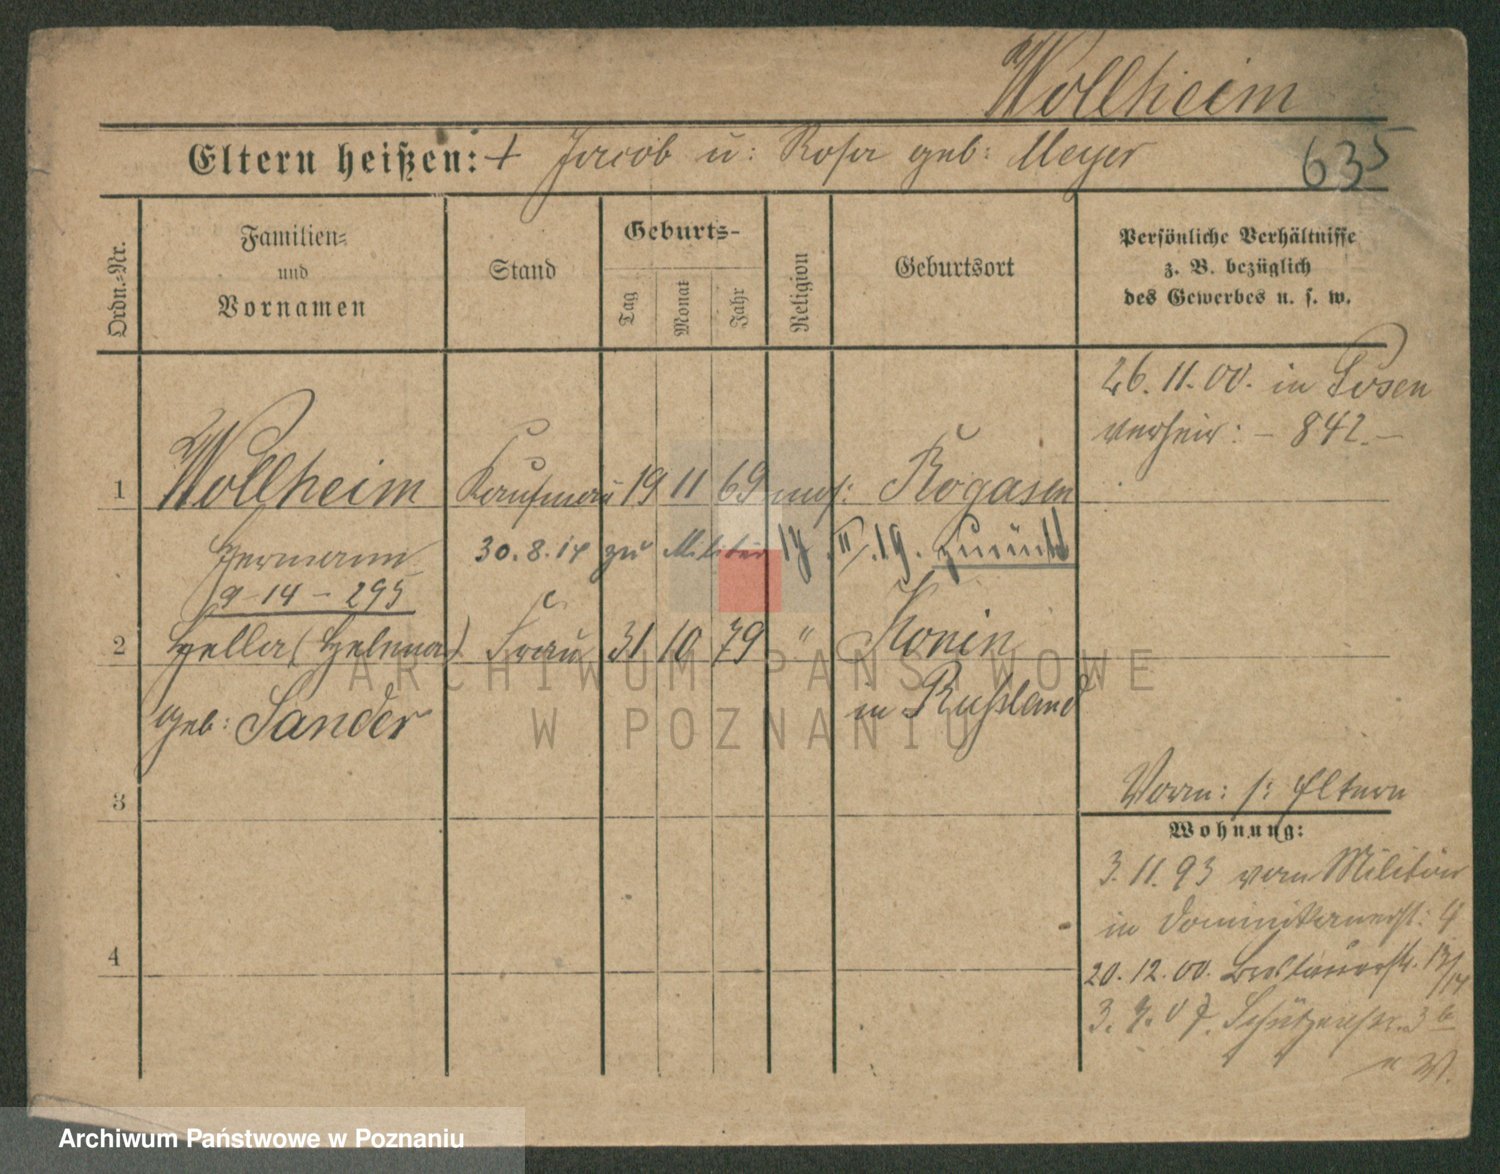 Wollheim
Eltern heißen: + Jacob u: Rosa geb: Meyer
635
Ordn.-Nr.
Familien-
und
Vornamen
Stand
Geburts-
Tag
Monat
Jahr
Religion
Geburtsort
Persönliche Verhältnisse
z. B. bezüglich
des Gewerbes u. s. w.
26.11.00. in Posen
verheir: - 842.-
1 Wollheim Kaufmann 19 11 69 mos: Rogasen
Hermann 30.8.14 zu Militär 17.II.19. zurück
9-14-295
2 Hella (Helena) Frau 31 10 79 " Konin
geb: Sander in Rußland
3
Vorm: s: Eltern
Wohnung:
3.11.93 vom Militär
in Dominikanerstr: 4
4
20.12.00. Breslauerstr. 13/14
3.7.07. Schützenstr. 3 b
n W.
ARCHIWUM PAŃSTWOWE
W POZNANIU
Archiwum Państwowe w Poznaniu